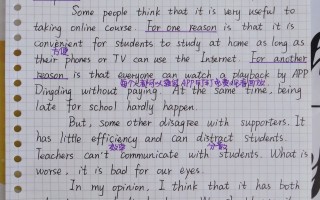 Some people think that it is very useful to
taking online course. For one reason is that it is
convenient for students to study at home as long as
方便
their phones or TV can use the Internet. For another
reason is that everyone can watch a playback by APP
Dingding without paying. At the same time, being
late for school hardly happen.
But, some other disagree with supporters. It
has little efficiency and can distract students.
效率 分散
Teachers can't communicate with students. What is
worse, it is bad for our eyes.
In my opinion, I think that it has both